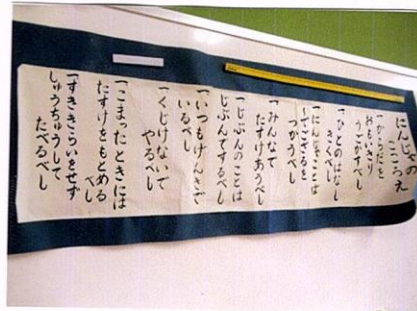 にんじゃの
こころえ
一からだを
おもいきり
うごかすべし
一ひとのはなし
きくべし
一にんじゃことば
でござるを
つかうべし
一みんなで
たすけあうべし
一じぶんのことは
じぶんでするべし
一いつもげんきで
いるべし
一くじけないで
やるべし
一こまったときには
たすけをもとめる
べし
一すききらいをせず
しゅうちゅうして
たべるべし